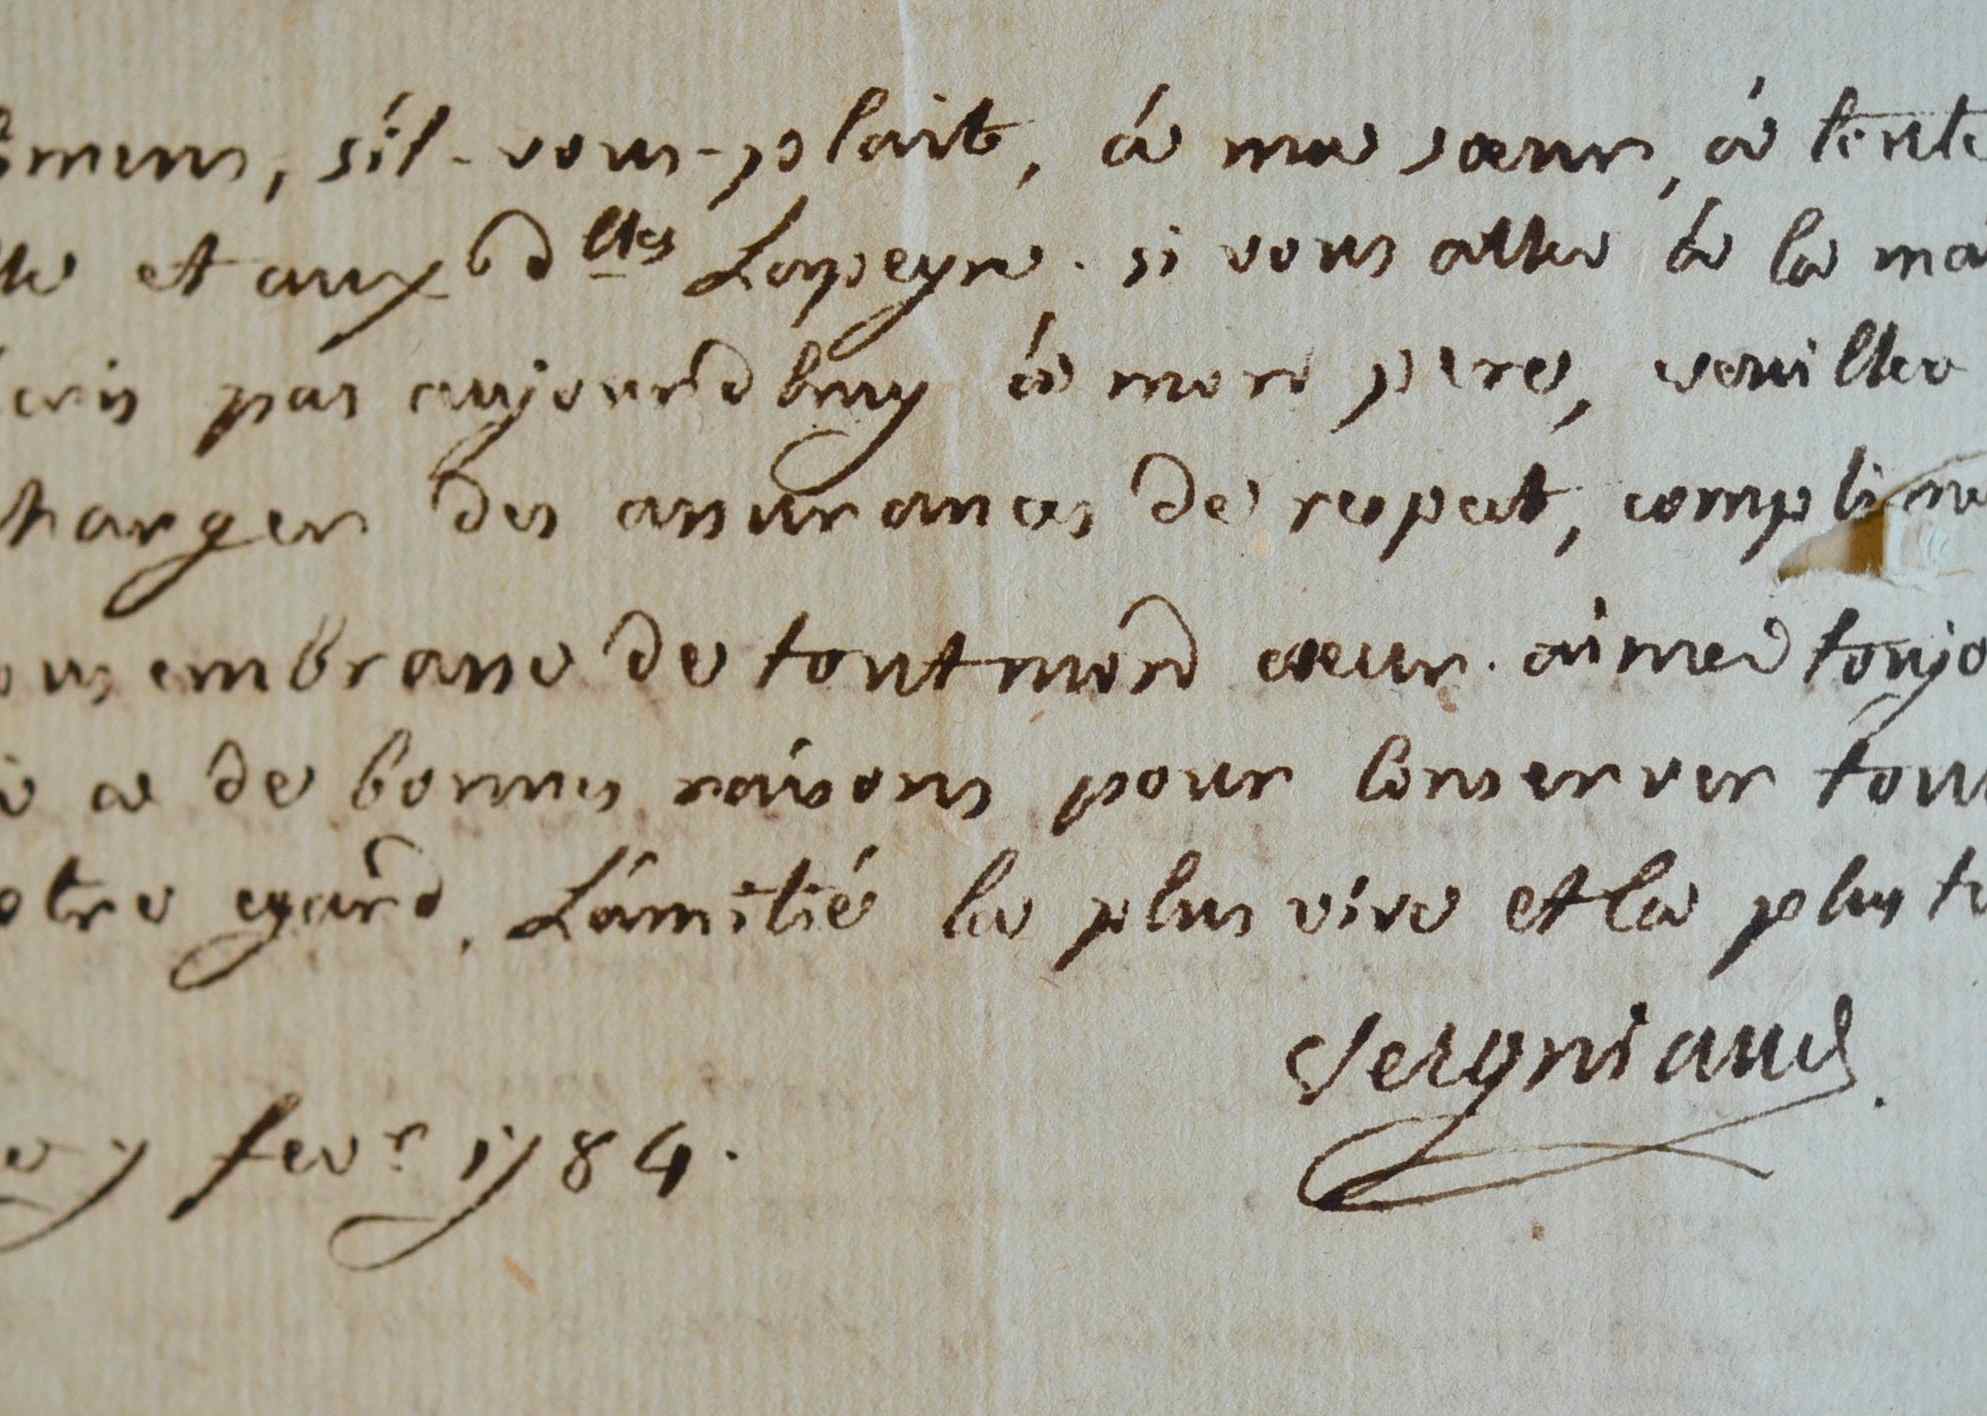 mens, s'il-vous-plait, à ma sœur, à toute
et aux d^lles Lapeyre. si vous allez à la ma
cris pas aujourd'huy à mon père, veuillez
harger des assurances de respect, complime
ous embrasse de tout mon cœur. aimez toujo
a de bonnes raisons pour conserver tou
otre egard, L'amitié la plus vive et la plus te
Vergniaud.
7 fev^r 1784.